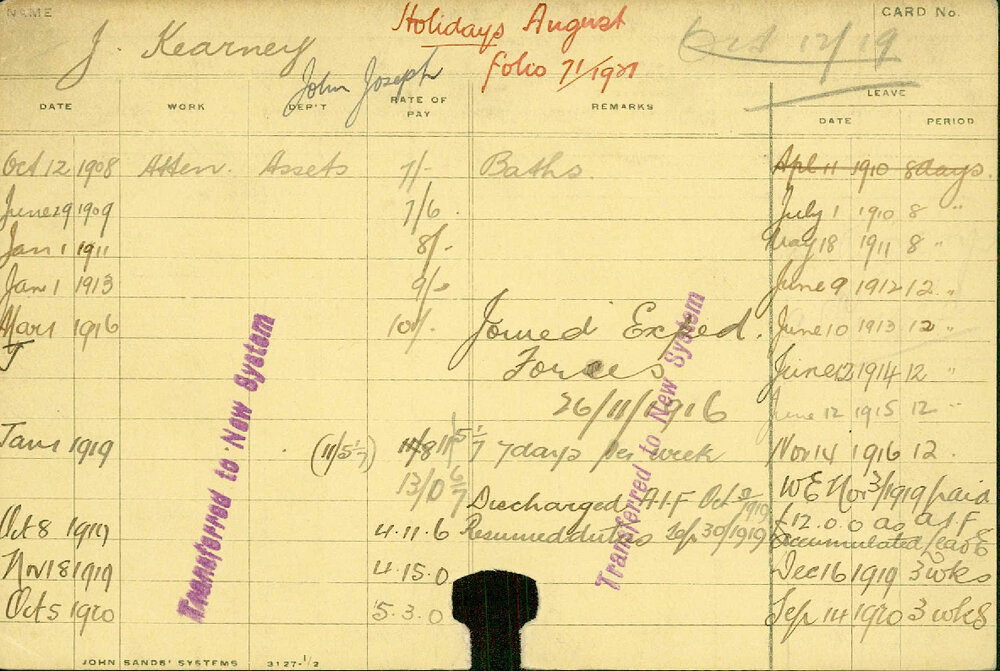 NAME J. Kearney Holidays August Oct 12/19 CARD No.
John Joseph folio 71/1921
DATE WORK DEP'T RATE OF PAY REMARKS LEAVE
DATE PERIOD
Oct 12 1908 Atten. Assets 7/- Baths. Apl 11 1910 8 days.
June 29 1909 7/6 July 1 1910 8 "
Jan 1 1911 8/- May 18 1911 8 "
Jan 1 1913 9/- June 9 1912 12 "
1916 10/- Joined Exped. June 10 1913 12 "
Forces June 1914 12 "
26/11/1916 June 12 1915 12 "
Jan 1 1919 (11/5 1/7) 11/8 11/5 1/7 7 days per week Nov 14 1916 12.
13/0 6/7 Discharged A.I.F Oct 1919 W E Nov 3/1919 paid
£12.0.0 as A.I.F
Oct 8 1919 4.11.6 Resumed duties Sep 30/1919 accumulated leave
Nov 18 1919 4.15.0 Dec 16 1919 3 wks
Oct 5 1920 5.3.0 Sep 14 1920 3 wks
Transferred to New System
Transferred to New System
JOHN SANDS' SYSTEMS 3127-1/2